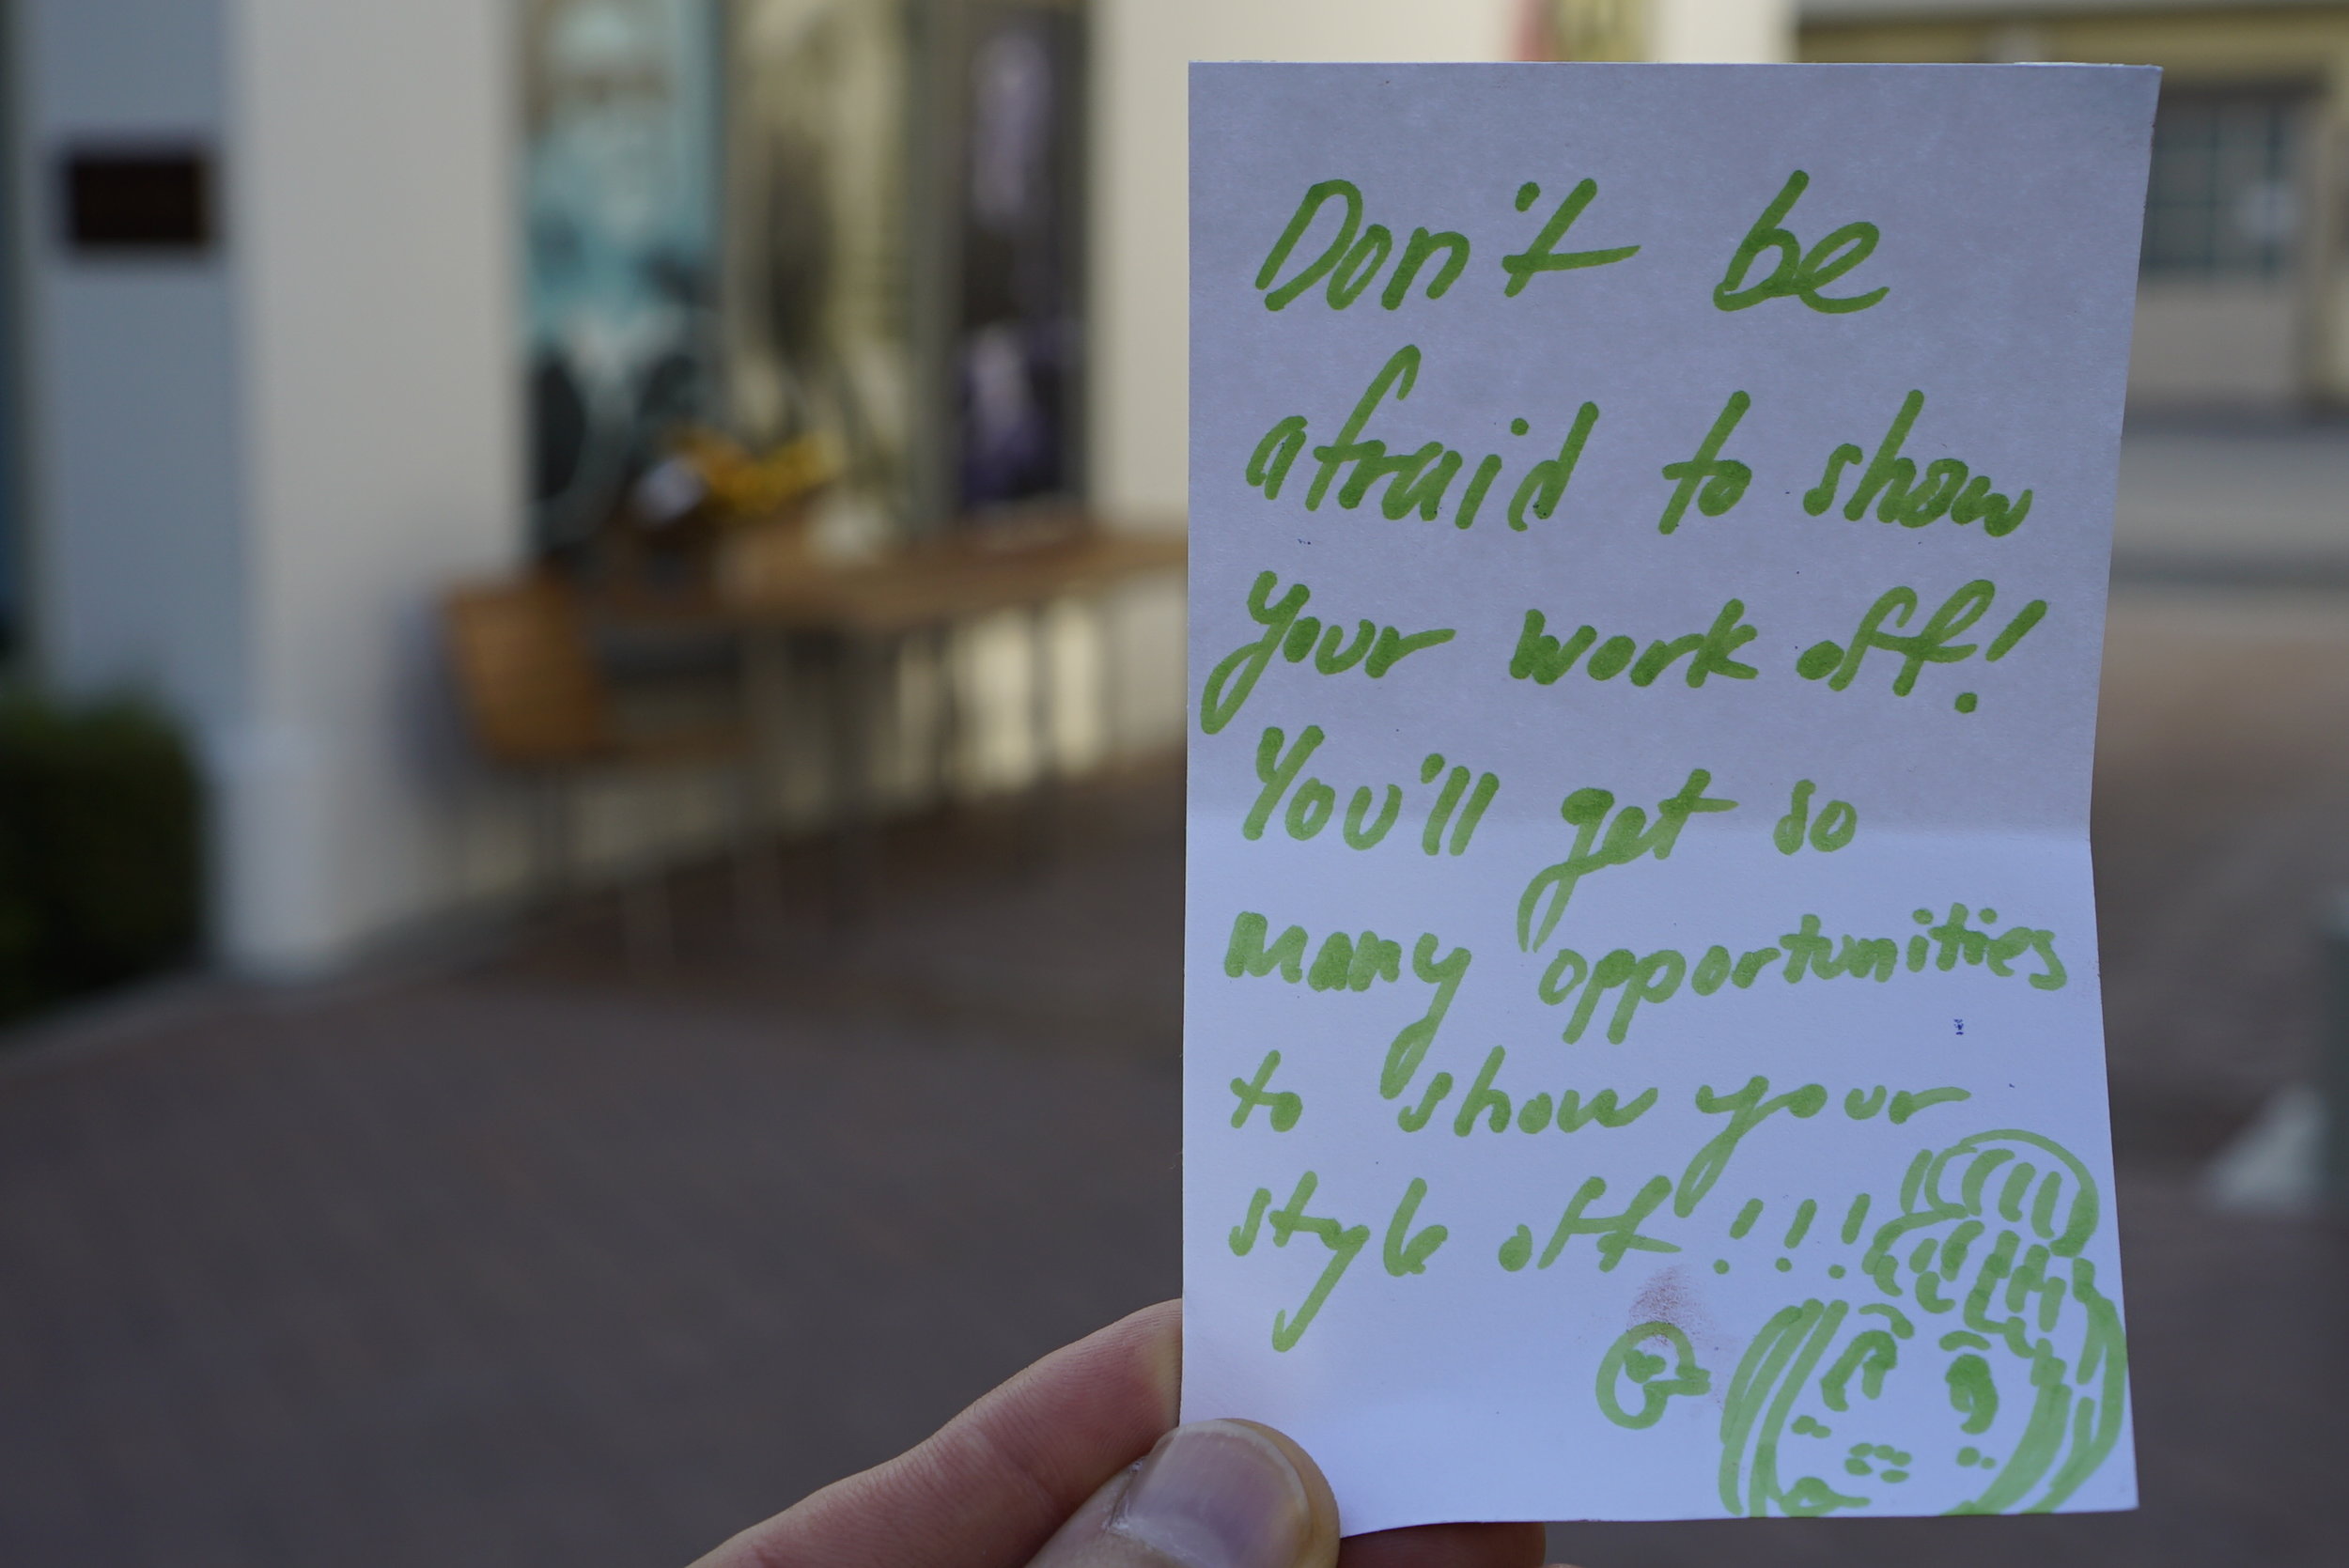 Don't be
afraid to show
your work off!
You'll get so
many opportunities
to show your
style off!!!